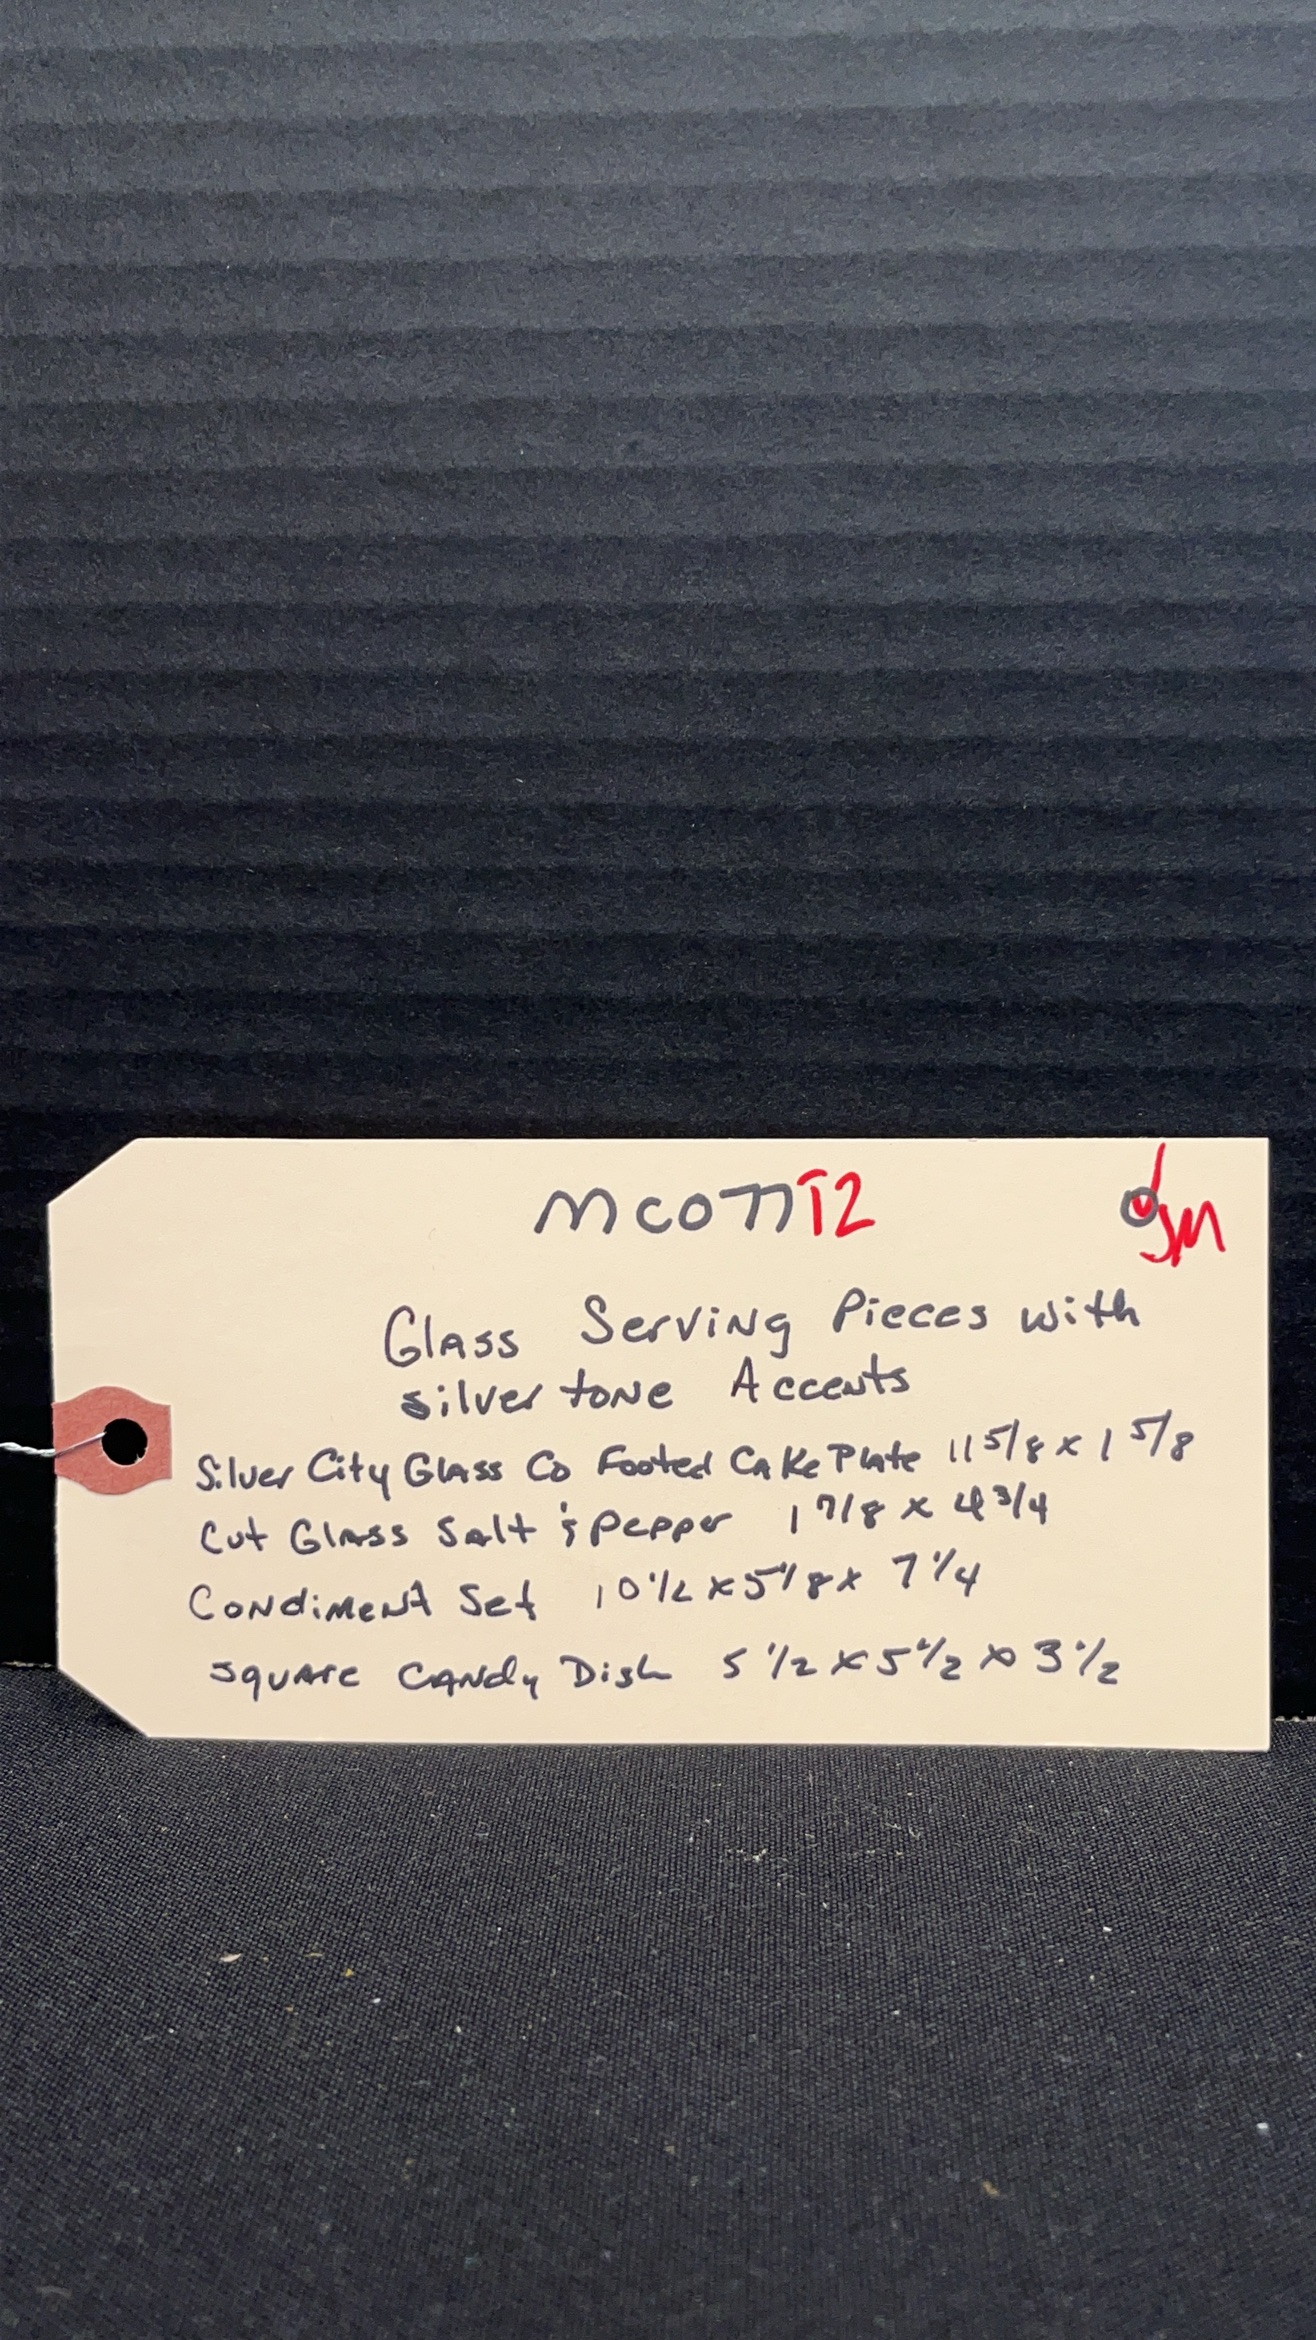 MC077T2
JM
Glass Serving Pieces with
silvertone Accents
Silver City Glass Co Footed Cake Plate 11 5/8 x 1 5/8
Cut Glass Salt & Pepper 1 7/8 x 4 3/4
Condiment Set 10 1/2 x 5 1/8 x 7 1/4
Square Candy Dish 5 1/2 x 5 1/2 x 3 1/2